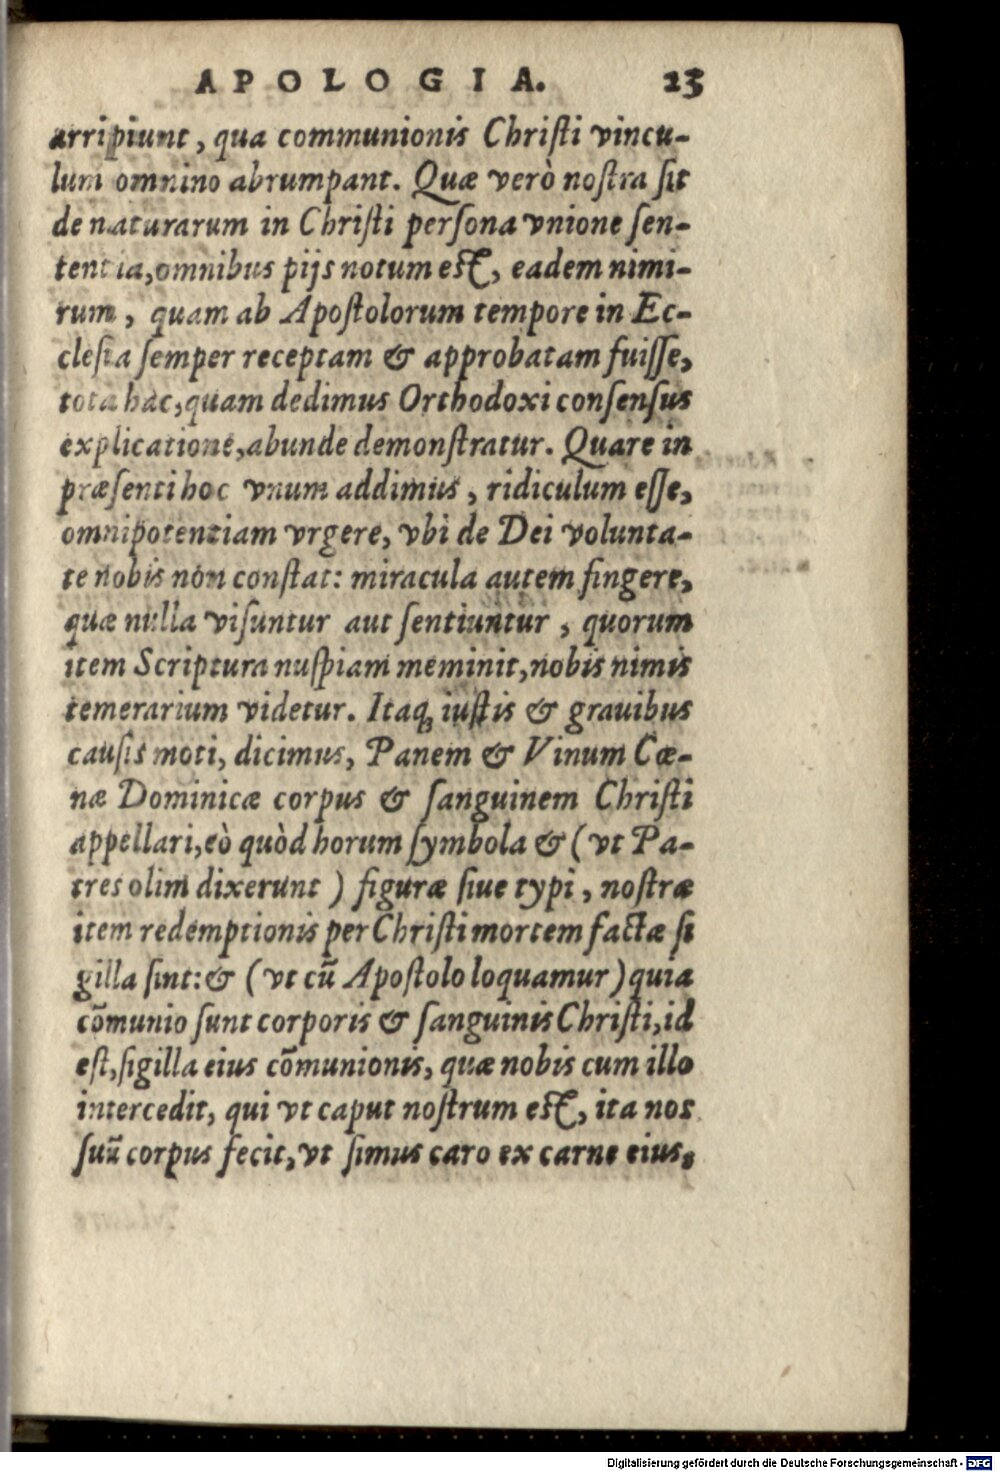 APOLOGIA. 23
arripiunt, qua communionis Christi vincu-
lum omnino abrumpant. Quæ verò nostra sit
de naturarum in Christi persona vnione sen-
tentia, omnibus pijs notum est, eadem nimi-
rum, quam ab Apostolorum tempore in Ec-
clesia semper receptam & approbatam fuisse,
tota hac, quam dedimus Orthodoxi consensus
explicatione, abunde demonstratur. Quare in
præsenti hoc vnum addimus, ridiculum esse,
omnipotentiam vrgere, vbi de Dei volunta-
te nobis non constat: miracula autem fingere,
quæ nulla visuntur aut sentiuntur, quorum
item Scriptura nuspiam meminit, nobis nimis
temerarium videtur. Itaq; iustis & grauibus
causis moti, dicimus, Panem & Vinum Cœ-
næ Dominicæ corpus & sanguinem Christi
appellari, eò quòd horum symbola & (vt Pa-
tres olim dixerunt) figuræ siue typi, nostræ
item redemptionis per Christi mortem factæ si
gilla sint: & (vt cũ Apostolo loquamur) quia
cõmunio sunt corporis & sanguinis Christi, id
est, sigilla eius cõmunionis, quæ nobis cum illo
intercedit, qui vt caput nostrum est, ita nos
suũ corpus fecit, vt simus caro ex carne eius,
Digitalisierung gefördert durch die Deutsche Forschungsgemeinschaft - DFG